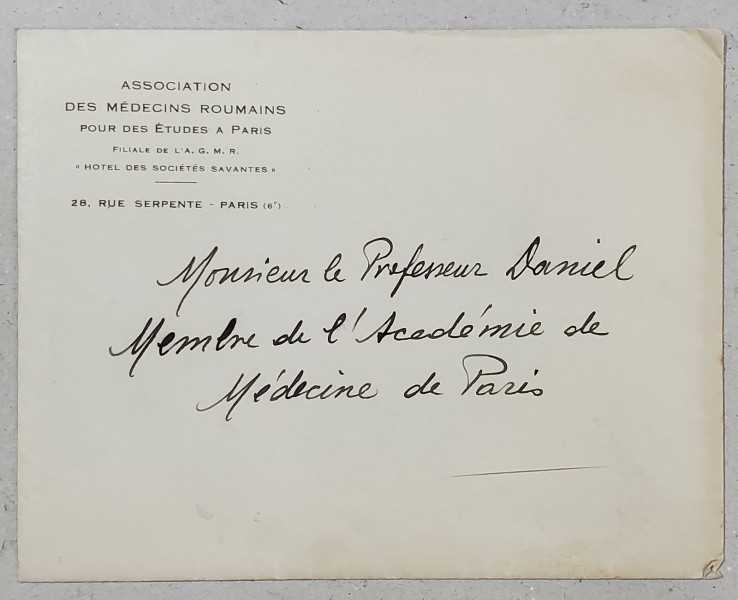 ASSOCIATION
DES MÉDECINS ROUMAINS
POUR DES ÉTUDES A PARIS
FILIALE DE L'A. G. M. R.
« HOTEL DES SOCIÉTÉS SAVANTES »
28, RUE SERPENTE - PARIS (6e)
Monsieur le Professeur Daniel
Membre de l'Académie de
Médecine de Paris